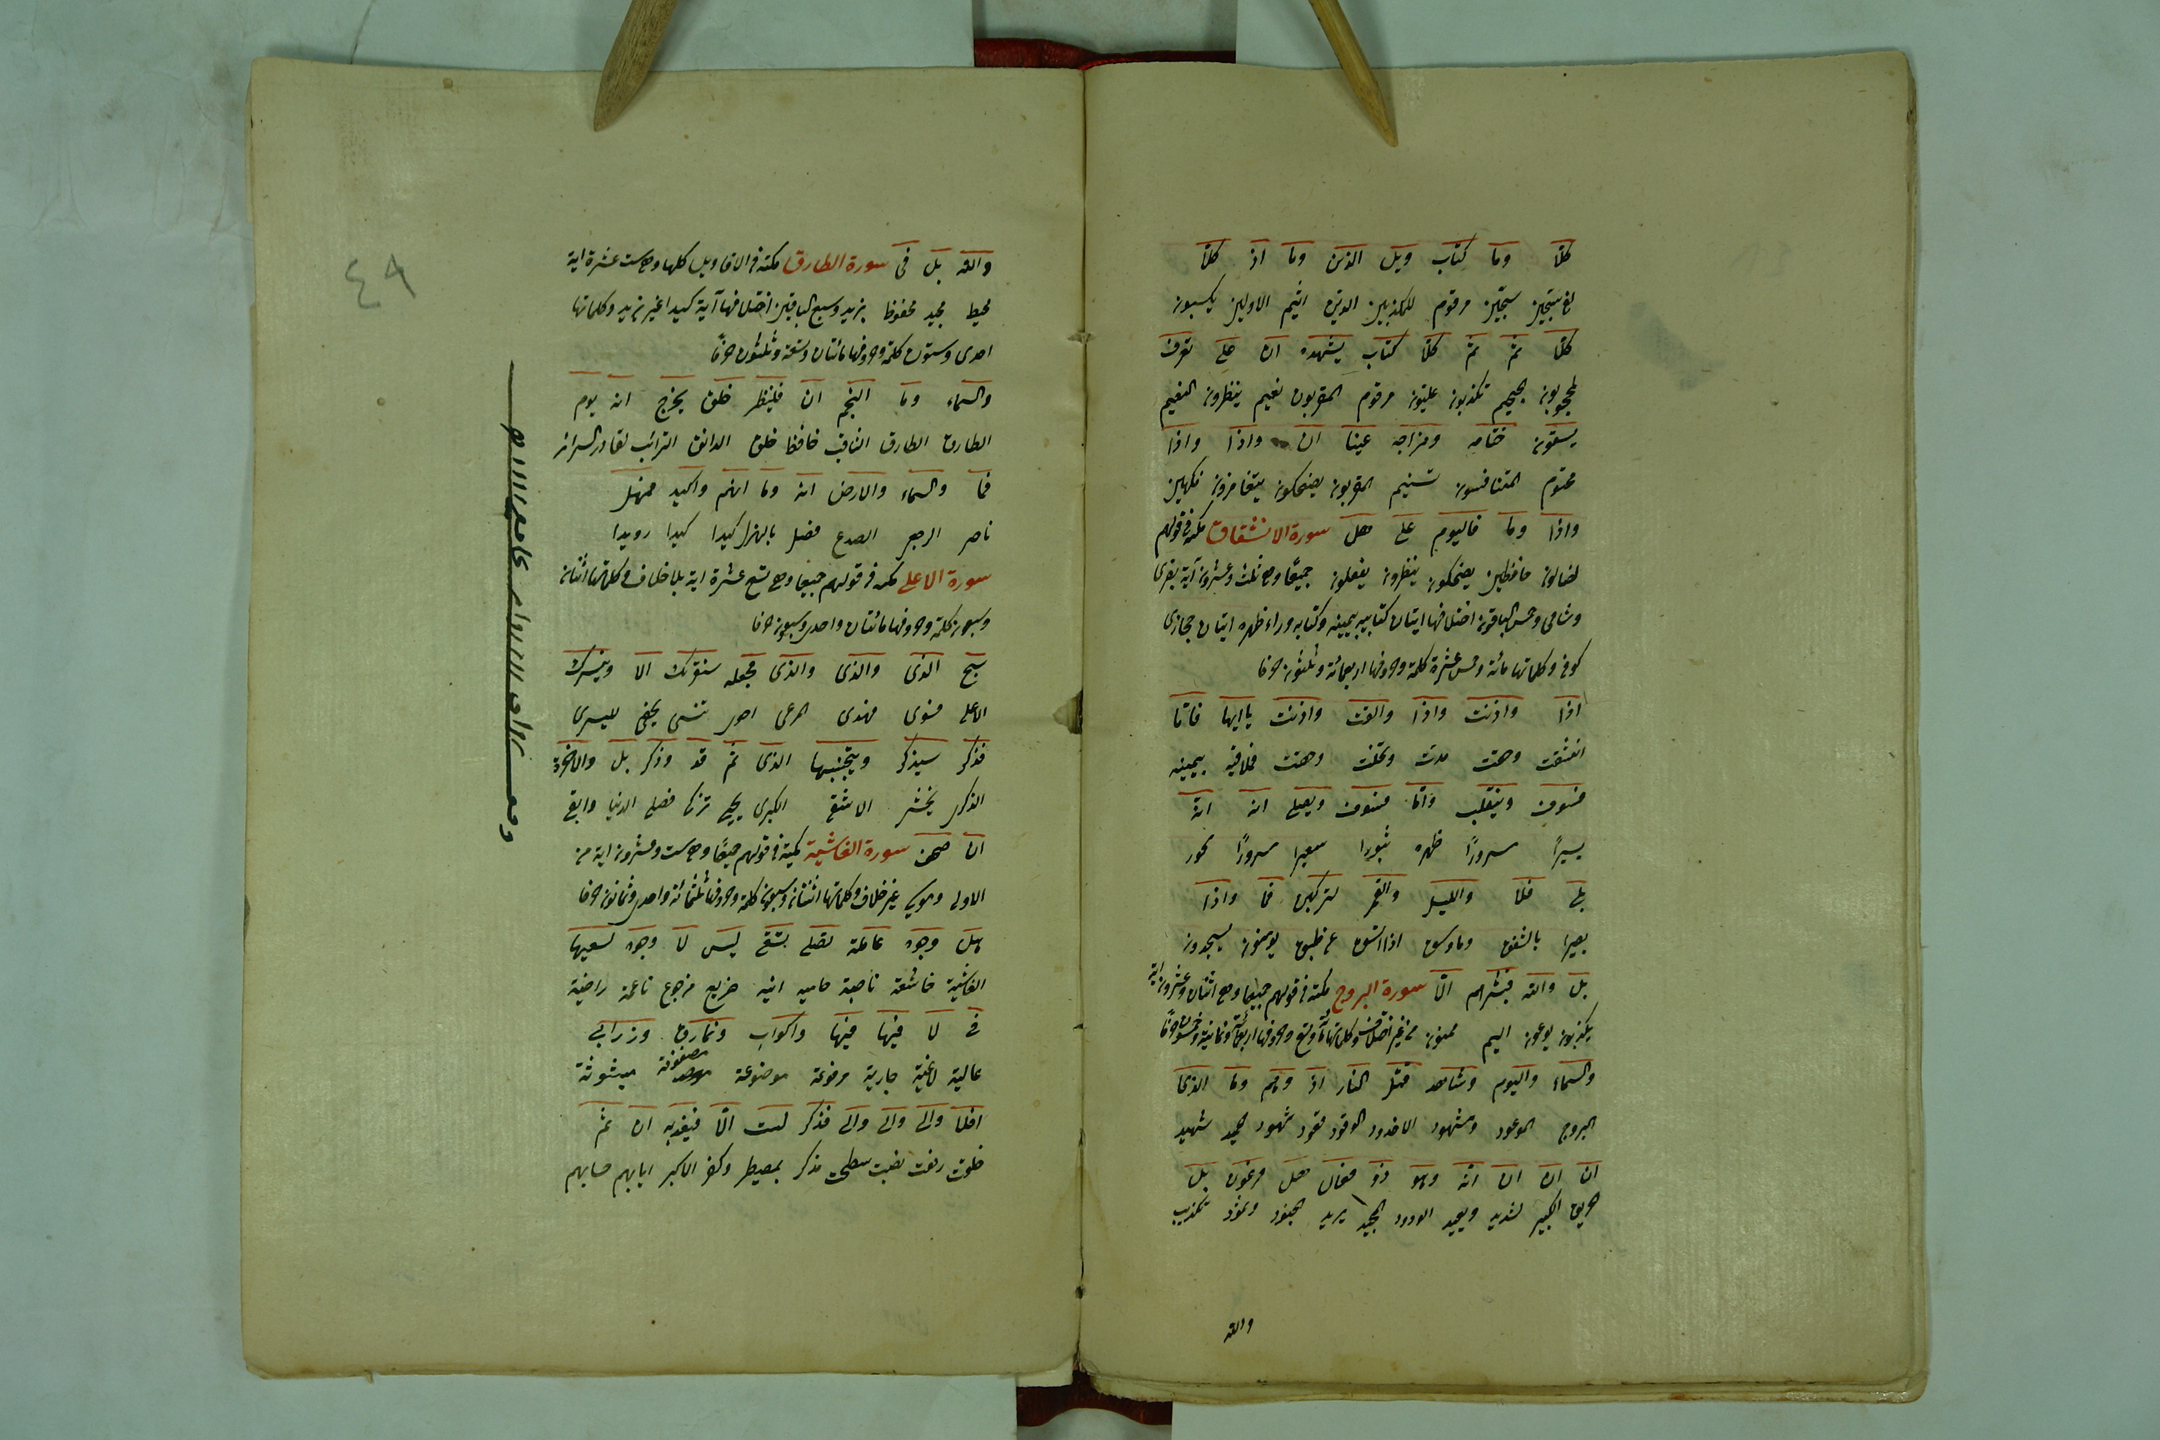 كلا وما كتاب ويل الذين وما اذ كلا
لفي سجين سجين مرقوم للمكذبين الدين اثيم الاولين يكسبون
كلا ثم ثم كلا كتاب يشهده ان على تعرف
لمحجوبون الجحيم تكذبون عليون مرقوم المقربون نعيم ينظرون النعيم
يسقون ختامه ومزاجه عينا ان واذا واذا
مختوم المتنافسون تسنيم المقربون يضحكون يتغامزون فكهين
واذا وما فاليوم على هل سورة الانشقاق مكية في قولهم
لضالون حافظين يضحكون ينظرون يفعلون جميعا وهي ثلث وعشرون آية بصرى
وشامى وخمس الباقون اختلافها ايتان كتابه بيمينه وكتابه وراء ظهره ايتان حجازى
كوفى وكلماتها مائة وخمس عشرة كلمة وحروفها اربعمائة وثلثون حرفا
اذا واذنت واذا والقت واذنت ياايها فاما
انشقت وحقت مدت وتخلت وحقت فملاقيه بيمينه
فسوف وينقلب واما فسوف ويصلى انه انه
يسيرا مسرورا ظهره ثبورا سعيرا مسرورا يحور
بلى فلا والليل والقمر لتركبن فما واذا
بصيرا بالشفق وما وسق اذا اتسق عن طبق يؤمنون يسجدون
بل والله فبشرهم الا سورة البروج مكية في قولهم جميعا وهي اثنان وعشرون اية
يكذبون يوعون اليم ممنون من غير اختلاف وكلماتها مائة وتسع وحروفها اربعمائة وثمانية وخمسون حرفا
والسماء واليوم وشاهد قتل النار اذ وهم وما الذى
البروج الموعود ومشهود الاخدود الوقود قعود شهود الحميد شهيد
ان ان ان انه وهو ذو فعال هل فرعون بل
الحريق الكبير لشديد ويعيد الودود المجيد يريد الجنود وثمود تكذيب
والله
والله بل فى سورة الطارق مكية في الاقاويل كلها وهي ست عشرة اية
محيط مجيد محفوظ يزيد وسبع الباقين اختلافها آية كيدا غير يزيد وكلماتها
احدى وستون كلمة وحروفها مائتان وتسعة وثلثون حرفا
والسماء وما النجم ان فلينظر خلق يخرج انه يوم
الطارق الطارق الثاقب حافظ خلق الدافق الترائب لقادر السرائر
فما والسماء والارض انه وما انهم واكيد فمهل
ناصر الرجع الصدع فصل بالهزل كيدا كيدا رويدا
سورة الاعلى مكية في قولهم جميعا وهي تسع عشرة اية بلا خلاف وكلماتها اثنان
وسبعون كلمة وحروفها مائتان واحدى وسبعون حرفا
سبح الذى والذى والذى فجعله سنقرئك الا ونيسرك
الاعلى فسوى فهدى المرعى احوى تنسى يخفى لليسرى
فذكر سيذكر ويتجنبها الذى ثم قد وذكر بل والاخرة
الذكرى يخشى الاشقى الكبرى يحيى تزكى فصلى الدنيا وابقى
ان صحف سورة الغاشية مكية في قولهم جميعا وهي ست وعشرون اية من
الاولى وموسى غير خلاف وكلماتها اثنتان وتسعون كلمة وحروفها ثلثمائة واحدى وثمانون حرفا
هل وجوه عاملة تصلى تسقى ليس لا وجوه لسعيها
الغاشية خاشعة ناصبة حامية انية ضريع من جوع ناعمة راضية
فى لا فيها فيها واكواب ونمارق وزرابى
عالية لاغية جارية مرفوعة موضوعة مصفوفة مبثوثة
افلا والى والى والى فذكر لست الا فيعذبه ان ثم
خلقت رفعت نصبت سطحت مذكر بمصيطر وكفر الاكبر ايابهم حسابهم
٤٩